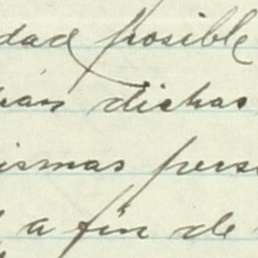 dad posible
rán dichas
ismas pers
a fin de